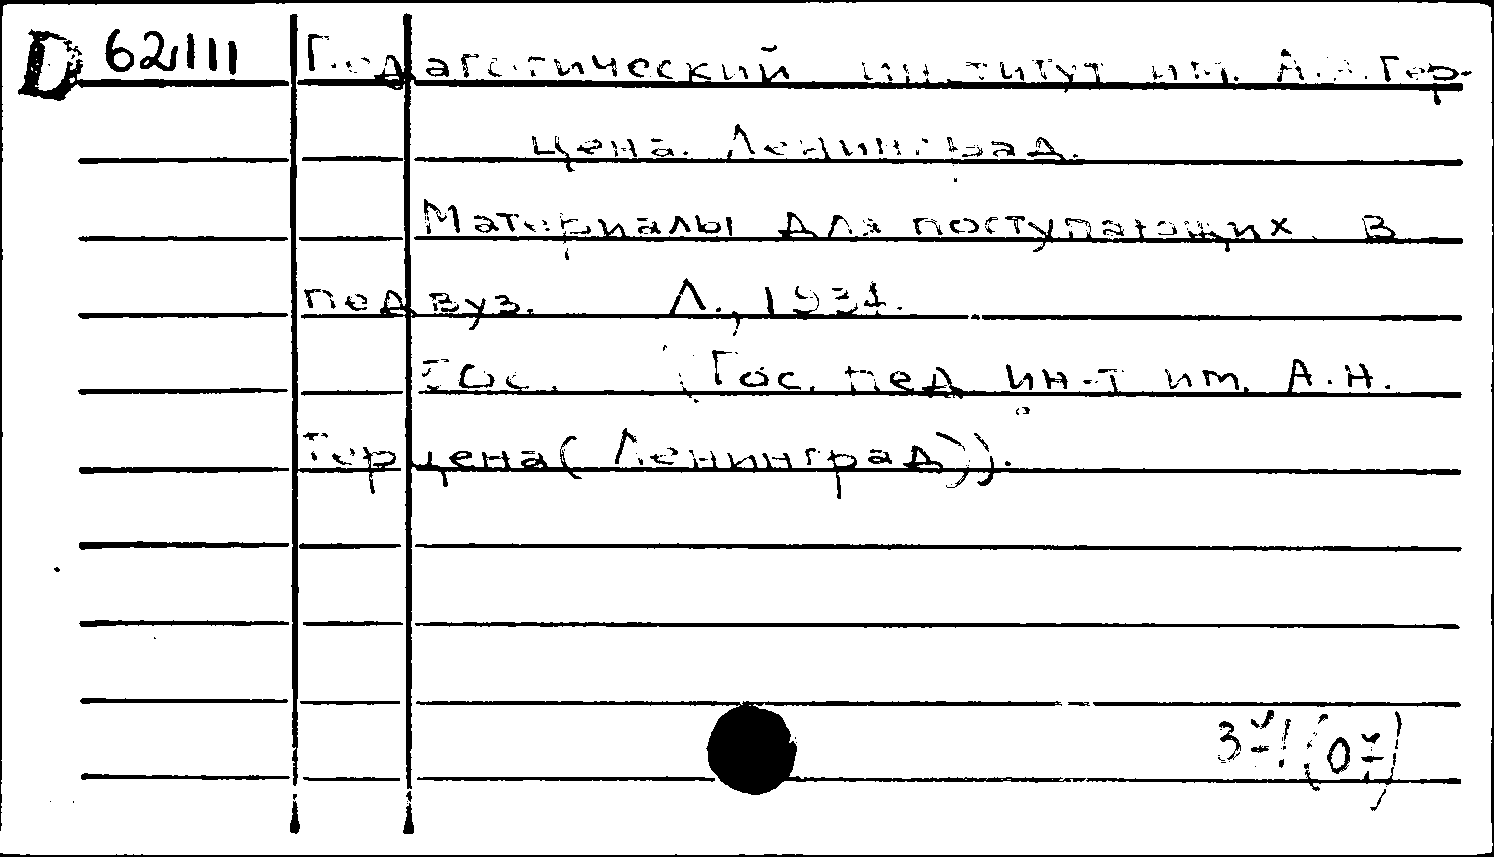 D 62/111 Педагогический институт им. А.И. Гер-
цена. Ленинград.
Материалы для поступающих в
педвуз. Л., 1931.
Гос. (Гос. пед ин-т им. А.Н.
Герцена (Ленинград)).
371(07)